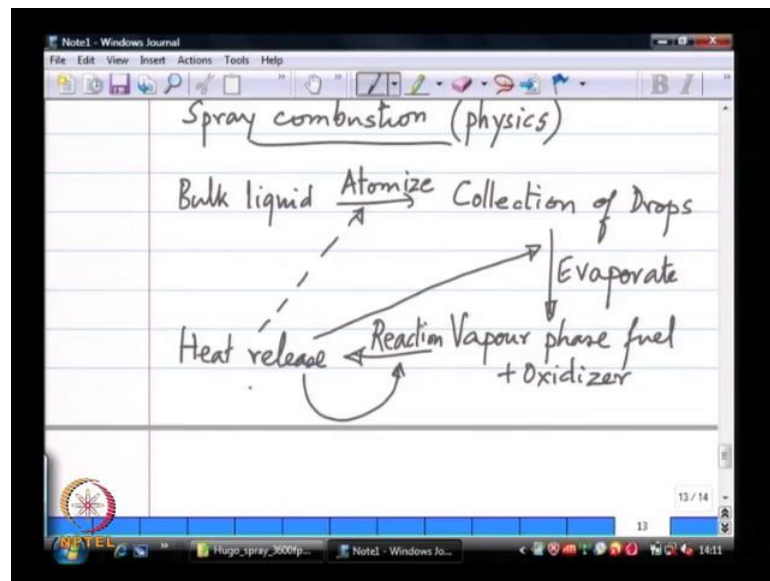 Note1 - Windows Journal
File Edit View Insert Actions Tools Help
B I
Spray combustion (physics)
Bulk liquid Atomize Collection of Drops
Evaporate
Heat release Reaction Vapour phase fuel
+ Oxidizer
13 / 14
13
NPTEL
Hugo_spray_3600fp...
Note1 - Windows Jo...
14:11